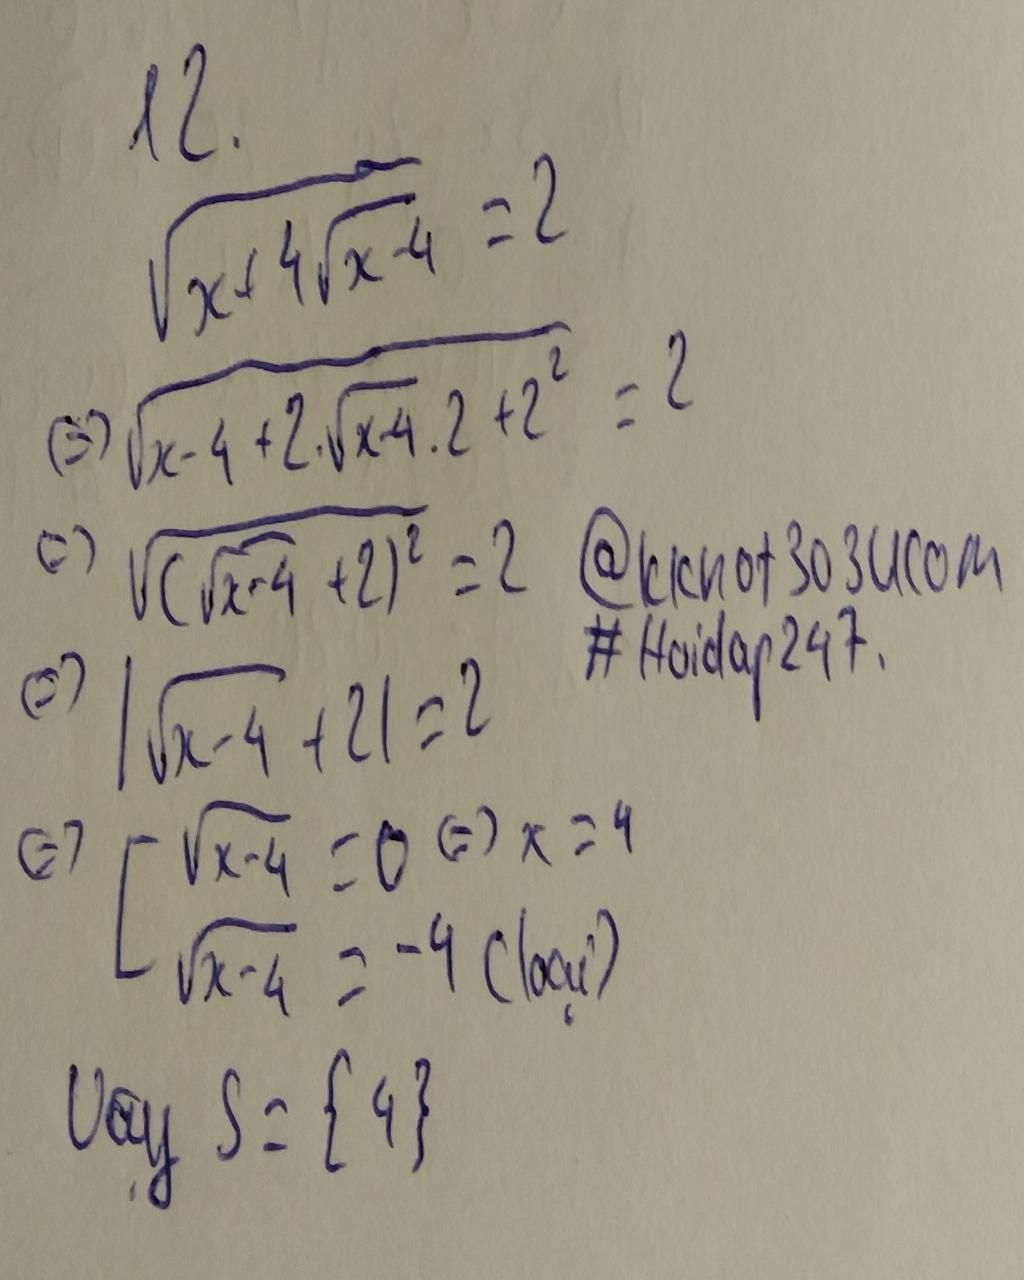 12.
√(x+4√(x-4)) = 2
(=) √(x-4+2.√(x-4).2+2²) = 2
(=) √((√(x-4)+2)²) = 2
@kknot303ucom
#Hoidap247.
(=) |√(x-4)+2| = 2
(=) [ √(x-4) = 0 (=) x = 4
√(x-4) = -4 (loại)
Vậy S = {4}